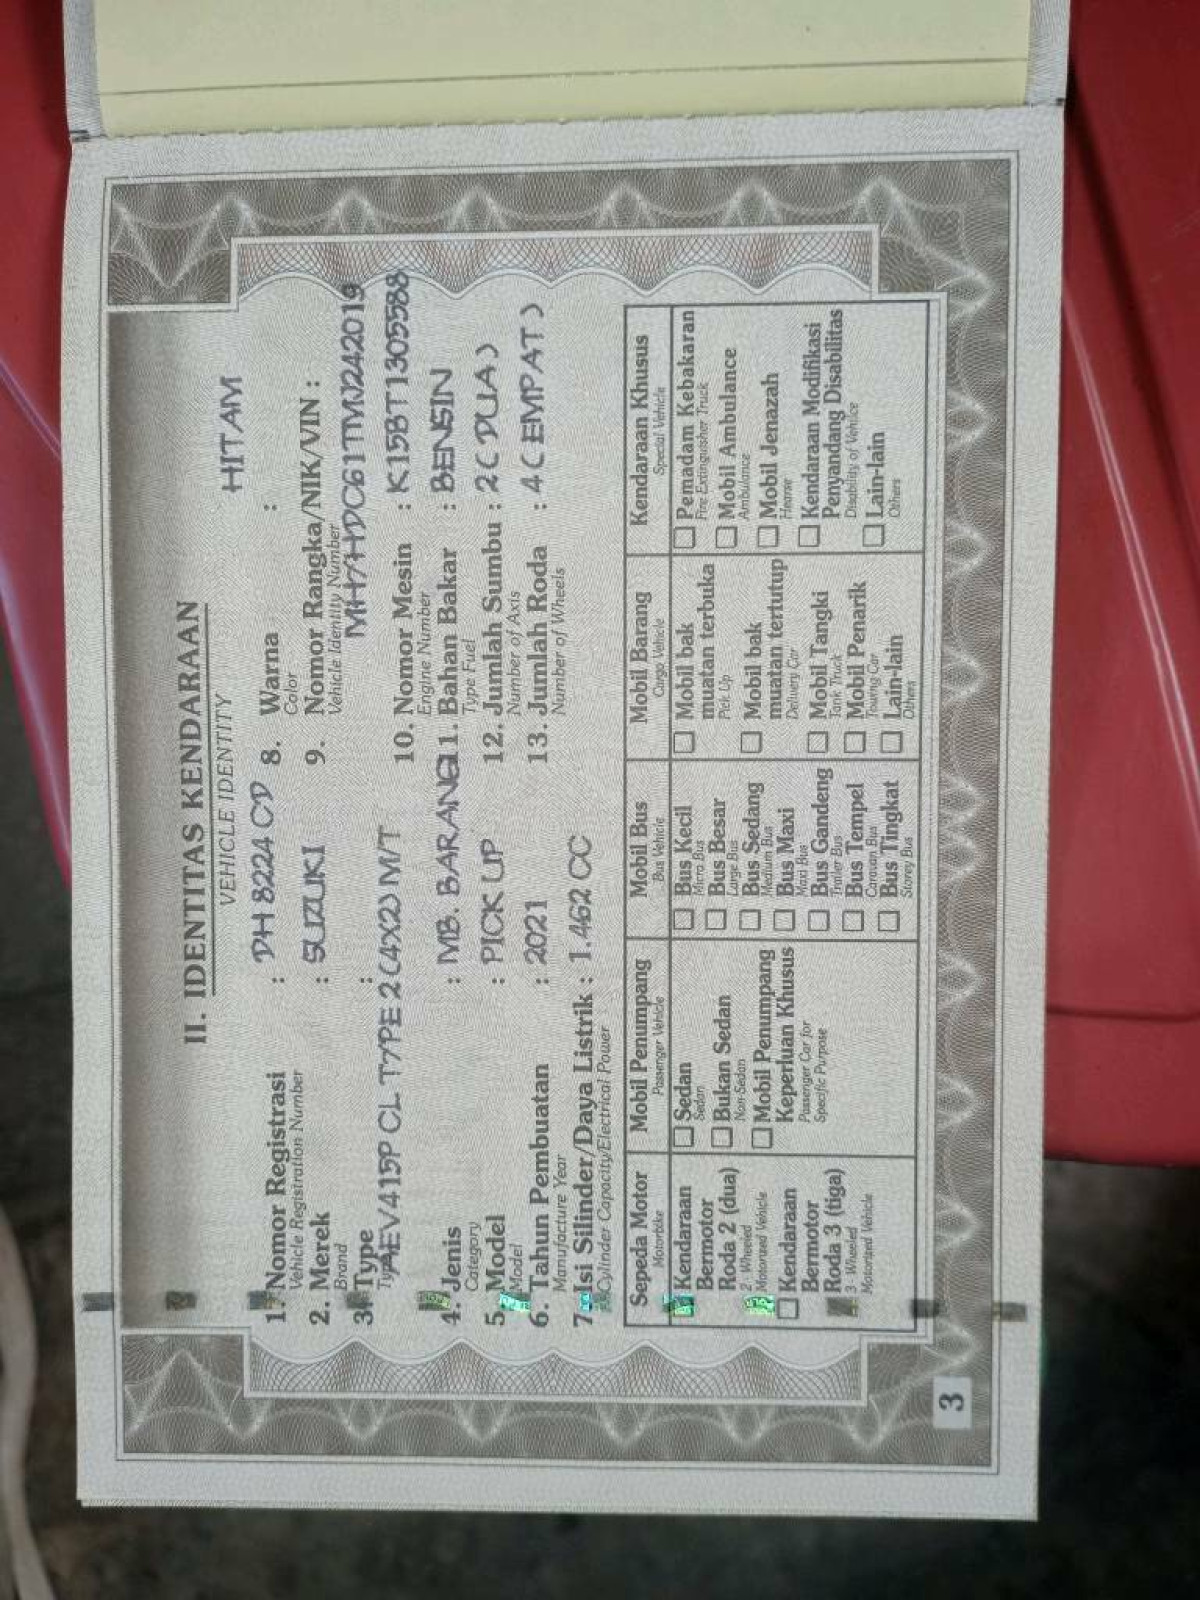 II. IDENTITAS KENDARAAN
VEHICLE IDENTITY
1. Nomor Registrasi : DH 8224 CD
Vehicle Registration Number
2. Merek : SUZUKI
Brand
3. Type :
AEV415P CL TYPE 2 (4X2) M/T
4. Jenis : MB. BARANG
Category
5. Model : PICK UP
Model
6. Tahun Pembuatan : 2021
Manufacture Year
7. Isi Silinder/Daya Listrik : 1.462 CC
Cylinder Capacity/Electrical Power
8. Warna : HITAM
Color
9. Nomor Rangka/NIK/VIN :
Vehicle Identity Number
MH7HDC61TMJ242019
10. Nomor Mesin : K15BT1305588
Engine Number
11. Bahan Bakar : BENSIN
Type Fuel
12. Jumlah Sumbu : 2 ( DUA )
Number of Axis
13. Jumlah Roda : 4 ( EMPAT )
Number of Wheels
Sepeda Motor
Motorbike
Kendaraan
Bermotor
Roda 2 (dua)
2 - Wheeled
Motorized Vehicle
Kendaraan
Bermotor
Roda 3 (tiga)
3 - Wheeled
Motorized Vehicle
Mobil Penumpang
Passenger Vehicle
Sedan
Sedan
Bukan Sedan
Non-Sedan
Mobil Penumpang
Keperluan Khusus
Passenger Car for
Specific Purpose
Mobil Bus
Bus Vehicle
Bus Kecil
Micro Bus
Bus Besar
Large Bus
Bus Sedang
Medium Bus
Bus Maxi
Maxi Bus
Bus Gandeng
Trailer Bus
Bus Tempel
Caravan Bus
Bus Tingkat
Storey Bus
Mobil Barang
Cargo Vehicle
Mobil bak
muatan terbuka
Pick Up
Mobil bak
muatan tertutup
Delivery Car
Mobil Tangki
Tank Truck
Mobil Penarik
Towing Car
Lain-lain
Others
Kendaraan Khusus
Special Vehicle
Pemadam Kebakaran
Fire Extinguisher Truck
Mobil Ambulance
Ambulance
Mobil Jenazah
Hearse
Kendaraan Modifikasi
Penyandang Disabilitas
Disability of Vehice
Lain-lain
Others
3